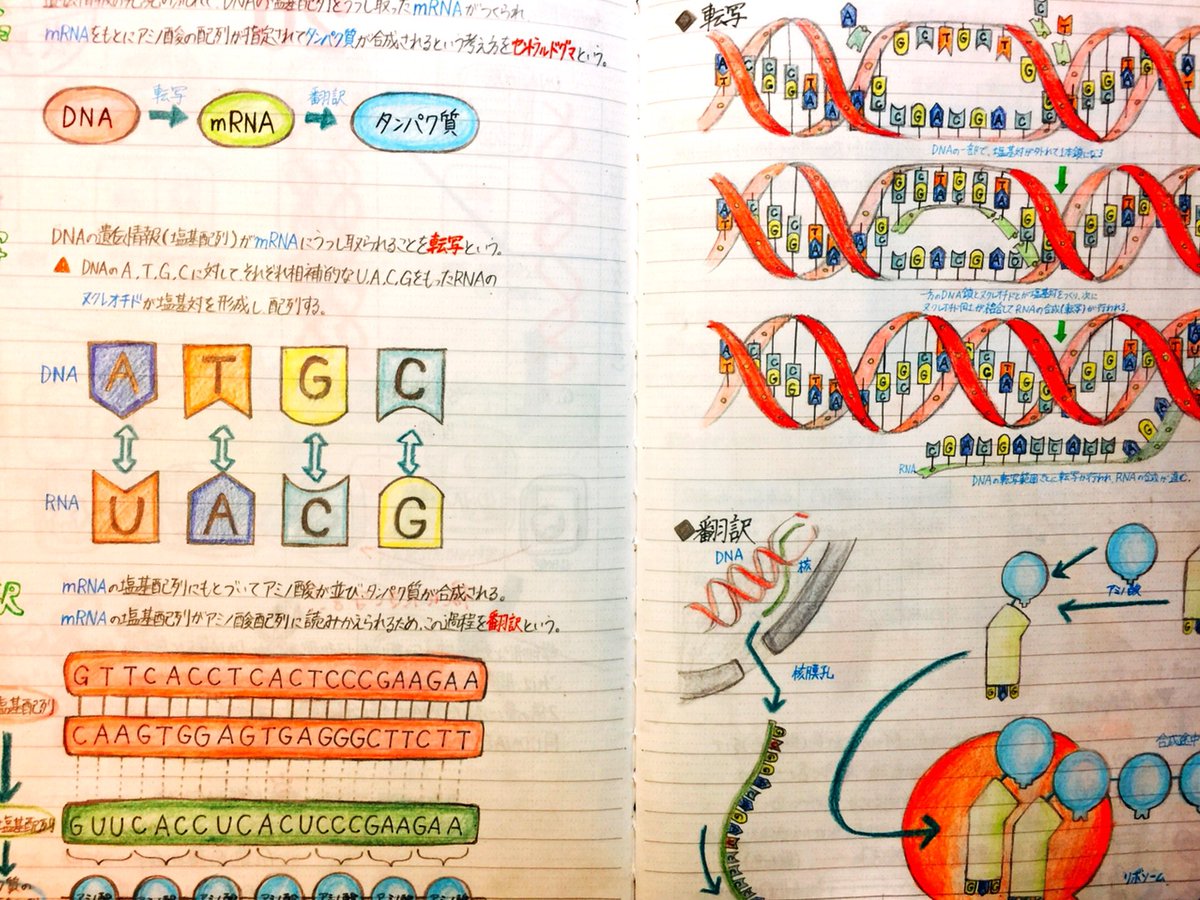 mRNAをもとにアミノ酸の配列が指定されてタンパク質が合成されるという考え方をセントラルドグマという。
DNA 転写 mRNA 翻訳 タンパク質
DNAの遺伝情報(塩基配列)がmRNAにうつし取られることを転写という。
DNAのA.T.G.Cに対して、それぞれ相補的なU.A.C.GをもったRNAの
ヌクレオチドが塩基対を形成し、配列する。
DNA A T G C
RNA U A C G
mRNAの塩基配列にもとづいてアミノ酸が並び、タンパク質が合成される。
mRNAの塩基配列がアミノ酸配列に読みかえられるため、この過程を翻訳という。
GTTCACCTCACTCCCGAAGAA
塩基配列
CAAGTGGAGTGAGGGCTTCTT
塩基配列
GUUCACCUCACUCCCGAAGAA
アミノ酸 アミノ酸 アミノ酸 アミノ酸 アミノ酸 アミノ酸
転写
A
C
T
G C T G C T
C G A C G A C
DNAの一部で、塩基対が外れて1本鎖になる
G C T G C T G
C G A C G A C
一方のDNA鎖とヌクレオチドとが塩基対をつくり、次に
ヌクレオチド同士が結合してRNAの合成(転写)が行われる。
C G A C G A C C A C C A G A
RNA
DNAの転写範囲ごとに転写が行われ、RNAの合成が進む。
翻訳
DNA
核
核膜孔
アミノ酸
G A G
合成途中
リボソーム